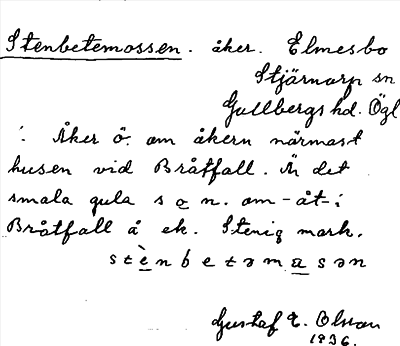 Stenbetemossen. åker. Elmesbo
Stjärnarp sn
Gullbergs hd. Ögl
Åker ö. om åkern närmast
husen vid Bråtfall. Är det
smala gula s o n. om-åt-i
Bråtfall å ek. Stenig mark.
stènbetəmasən
Gustaf E. Olson
1936.